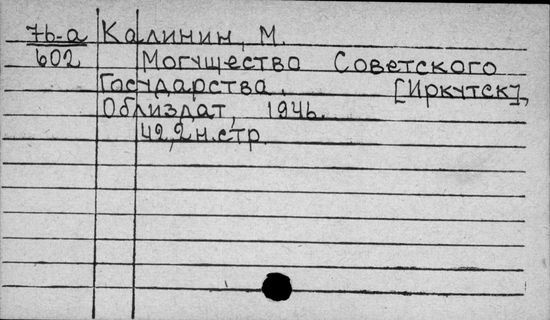 7б-а Калинин, М.
602 Могущество Советского
Государства. [Иркутск],
Облиздат, 1946.
42,2 н.стр.